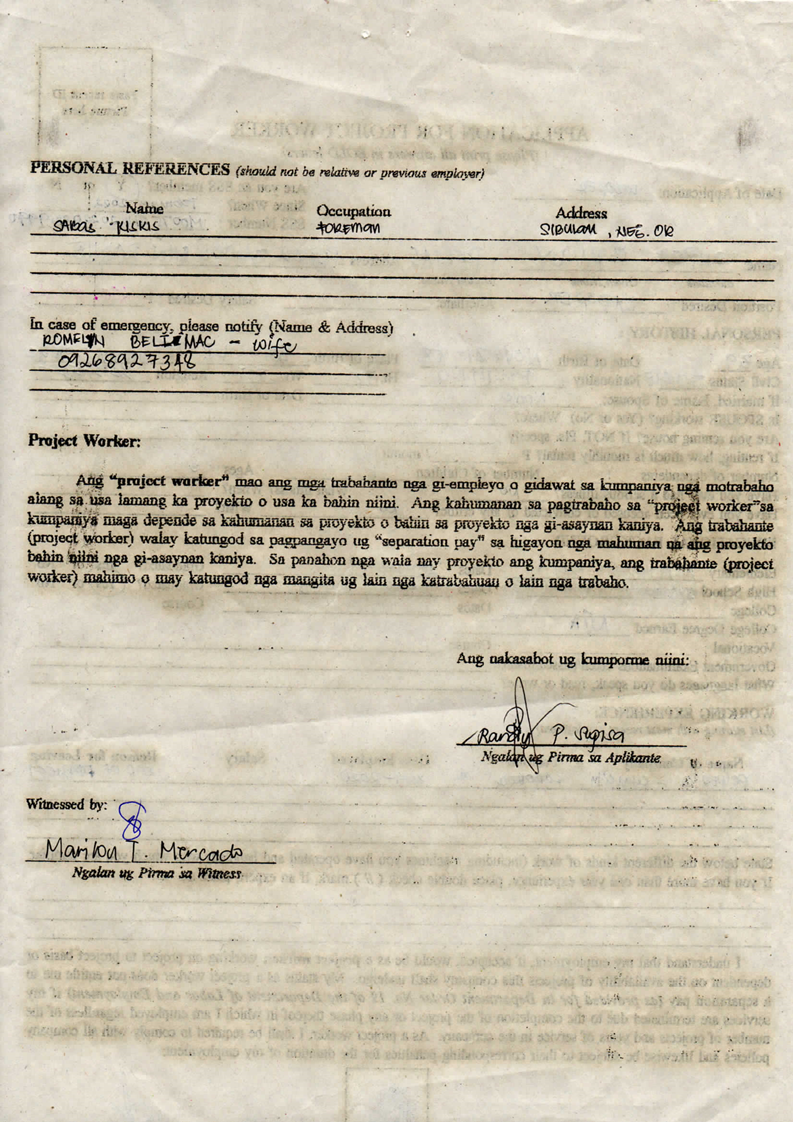 PERSONAL REFERENCES (should not be relative or previous employer)
Name Occupation Address
SABAS KISKIS FOREMAN SIBULAN, NEG. OR
In case of emergency, please notify (Name & Address)
ROMELYN - wife
09268927348
Project Worker:
Ang "project worker" mao ang mga trabahante nga gi-empleyo o gidawat sa kumpaniya nga motrabaho
alang sa usa lamang ka proyekto o usa ka bahin niini. Ang kahumanan sa pagtrabaho sa "project worker"sa
kumpaniya maga depende sa kahumanan sa proyekto o bahin sa proyekto nga gi-asaynan kaniya. Ang trabahante
(project worker) walay katungod sa pagpangayo ug "separation pay" sa higayon nga mahuman na ang proyekto
bahin niini nga gi-asaynan kaniya. Sa panahon nga wala nay proyekto ang kumpaniya, ang trabahante (project
worker) mahimo o may katungod nga mangita ug lain nga katrabahuan o lain nga trabaho.
Ang nakasabot ug kumporme niini:
Randy P.
Ngalan ug Pirma sa Aplikante
Witnessed by:
Marilou T. Mercado
Ngalan ug Pirma sa Witness